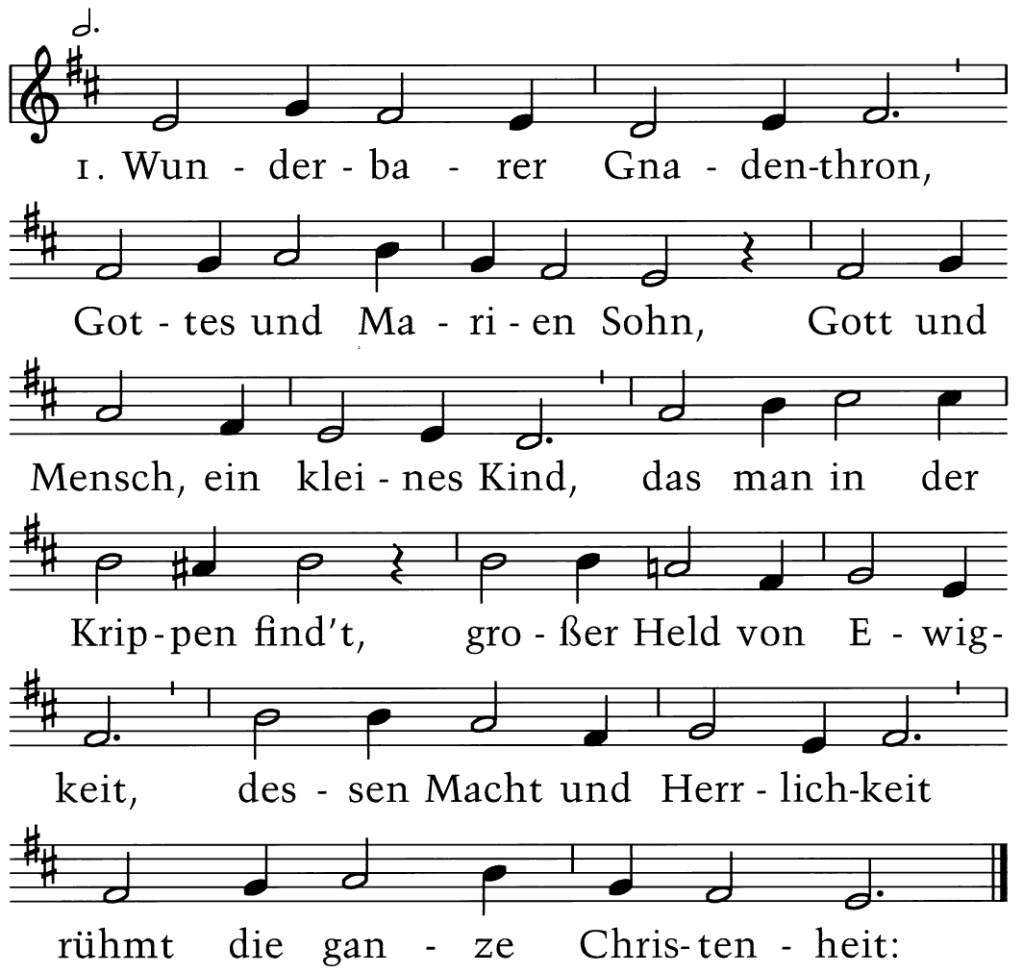 1. Wun - der - ba - rer Gna - den-thron,
Got - tes und Ma - ri - en Sohn, Gott und
Mensch, ein klei - nes Kind, das man in der
Krip-pen find't, gro - ßer Held von E - wig-
keit, des - sen Macht und Herr - lich-keit
rühmt die gan - ze Chris- ten - heit: